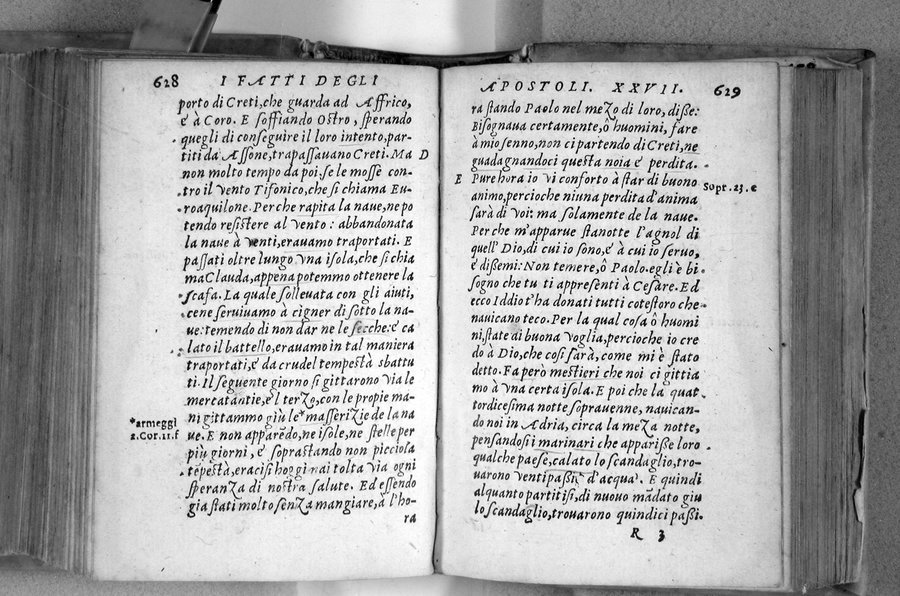 628 I FATTI DEGLI
porto di Creti, che guarda ad Affrico,
e à Coro. E soffiando Ostro, sperando
quegli di conseguire il loro intento, par-
titi da Assone, trapassauano Creti. Ma D
non molto tempo da poi, se le mosse con-
tro il vento Tifonico, che si chiama Eu-
roaquilone. Per che rapita la naue, ne po
tendo resistere al vento: abbandonata
la naue à venti, erauamo traportati. E
passati oltre lungo vna isola, che si chia
ma Clauda, appena potemmo ottenere la
scafa. La quale solleuata con gli aiuti,
cene seruiuamo à cigner di sotto la na-
ue: temendo di non dar ne le secche: è ca
lato il battello, erauamo in tal maniera
traportati, è da crudel tempestà sbattu
ti. Il seguente giorno si gittarono via le
mercatantie, è l terzo, con le propie ma-
ni gittammo giù le*masserizie de la na
*armeggi
2.Cor.11.f
ue. E non apparēdo, ne isole, ne stelle per
più giorni, è soprastando non picciola
tēpestà, eraci si hoggi mai tolta via ogni
speranza di nostra salute. Ed essendo
gia stati molto senza mangiare, à l'ho-
ra
APOSTOLI. XXVII. 629
ra stando Paolo nel mezo di loro, disse:
Bisognaua certamente, ô huomini, fare
à mio senno, non ci partendo di Creti, ne
guadagnandoci questa noia è perdita.
E Pure hora io vi conforto à star di buono
Sopt.23.e
animo, percioche niuna perdita d'anima
sarà di voi: ma solamente de la naue.
Per che m'apparue stanotte l'agnol di
quell' Dio, di cui io sono, è à cui io seruo,
è dissemi: Non temere, ô Paolo. egli è bi-
sogno che tu ti appresenti à Cesare. Ed
ecco Iddio t'ha donati tutti cotestoro che
nauicano teco. Per la qual cosa ô huomi
ni, state di buona voglia, percioche io cre
do à Dio, che cosi sarà, come mi è stato
detto. Fa però mestieri che noi ci gittia
mo à vna certa isola. E poi che la quat
tordicesima notte soprauenne, nauican-
do noi in Adria, circa la meza notte,
pensandosi i marinari che apparisse loro
qualche paese, calato lo scandaglio, tro-
uarono venti passi d'acqua. E quindi
alquanto partitisi, di nuouo mādato giu
lo scandaglio, trouarono quindici passi.
R 3